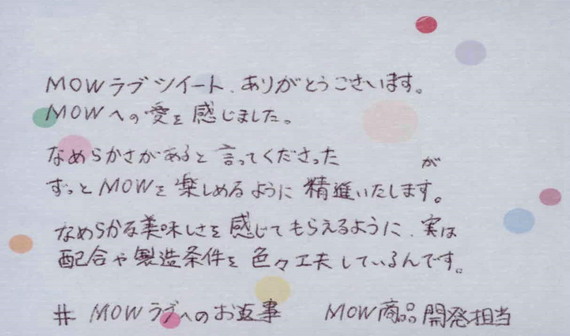 MOWラブツイート、ありがとうございます。
MOWへの愛を感じました。
なめらかさがあると言ってくださった が
ずっとMOWを楽しめるように精進いたします。
なめらかな美味しさを感じてもらえるように、実は
配合や製造条件を色々工夫しているんです。
# MOWラブへのお返事 MOW商品開発担当